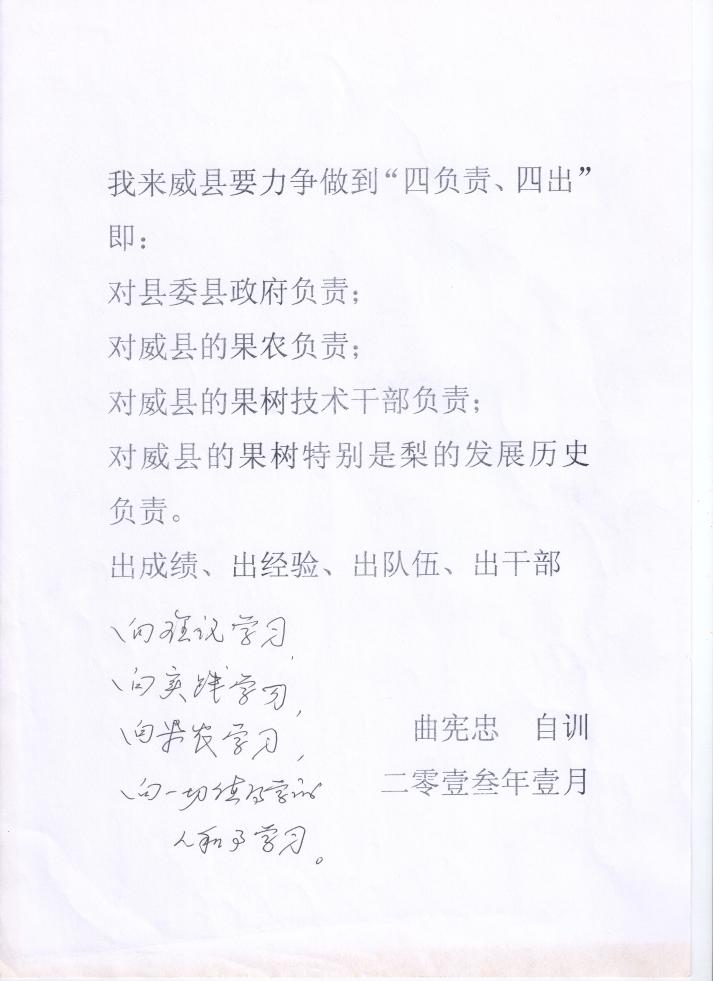 我来威县要力争做到“四负责、四出”
即：
对县委县政府负责；
对威县的果农负责；
对威县的果树技术干部负责；
对威县的果树特别是梨的发展历史
负责。
出成绩、出经验、出队伍、出干部
向理论学习，
向实践学习，
向果农学习，
曲宪忠　自训
向一切值得学习的
二零壹叁年壹月
人和事学习。